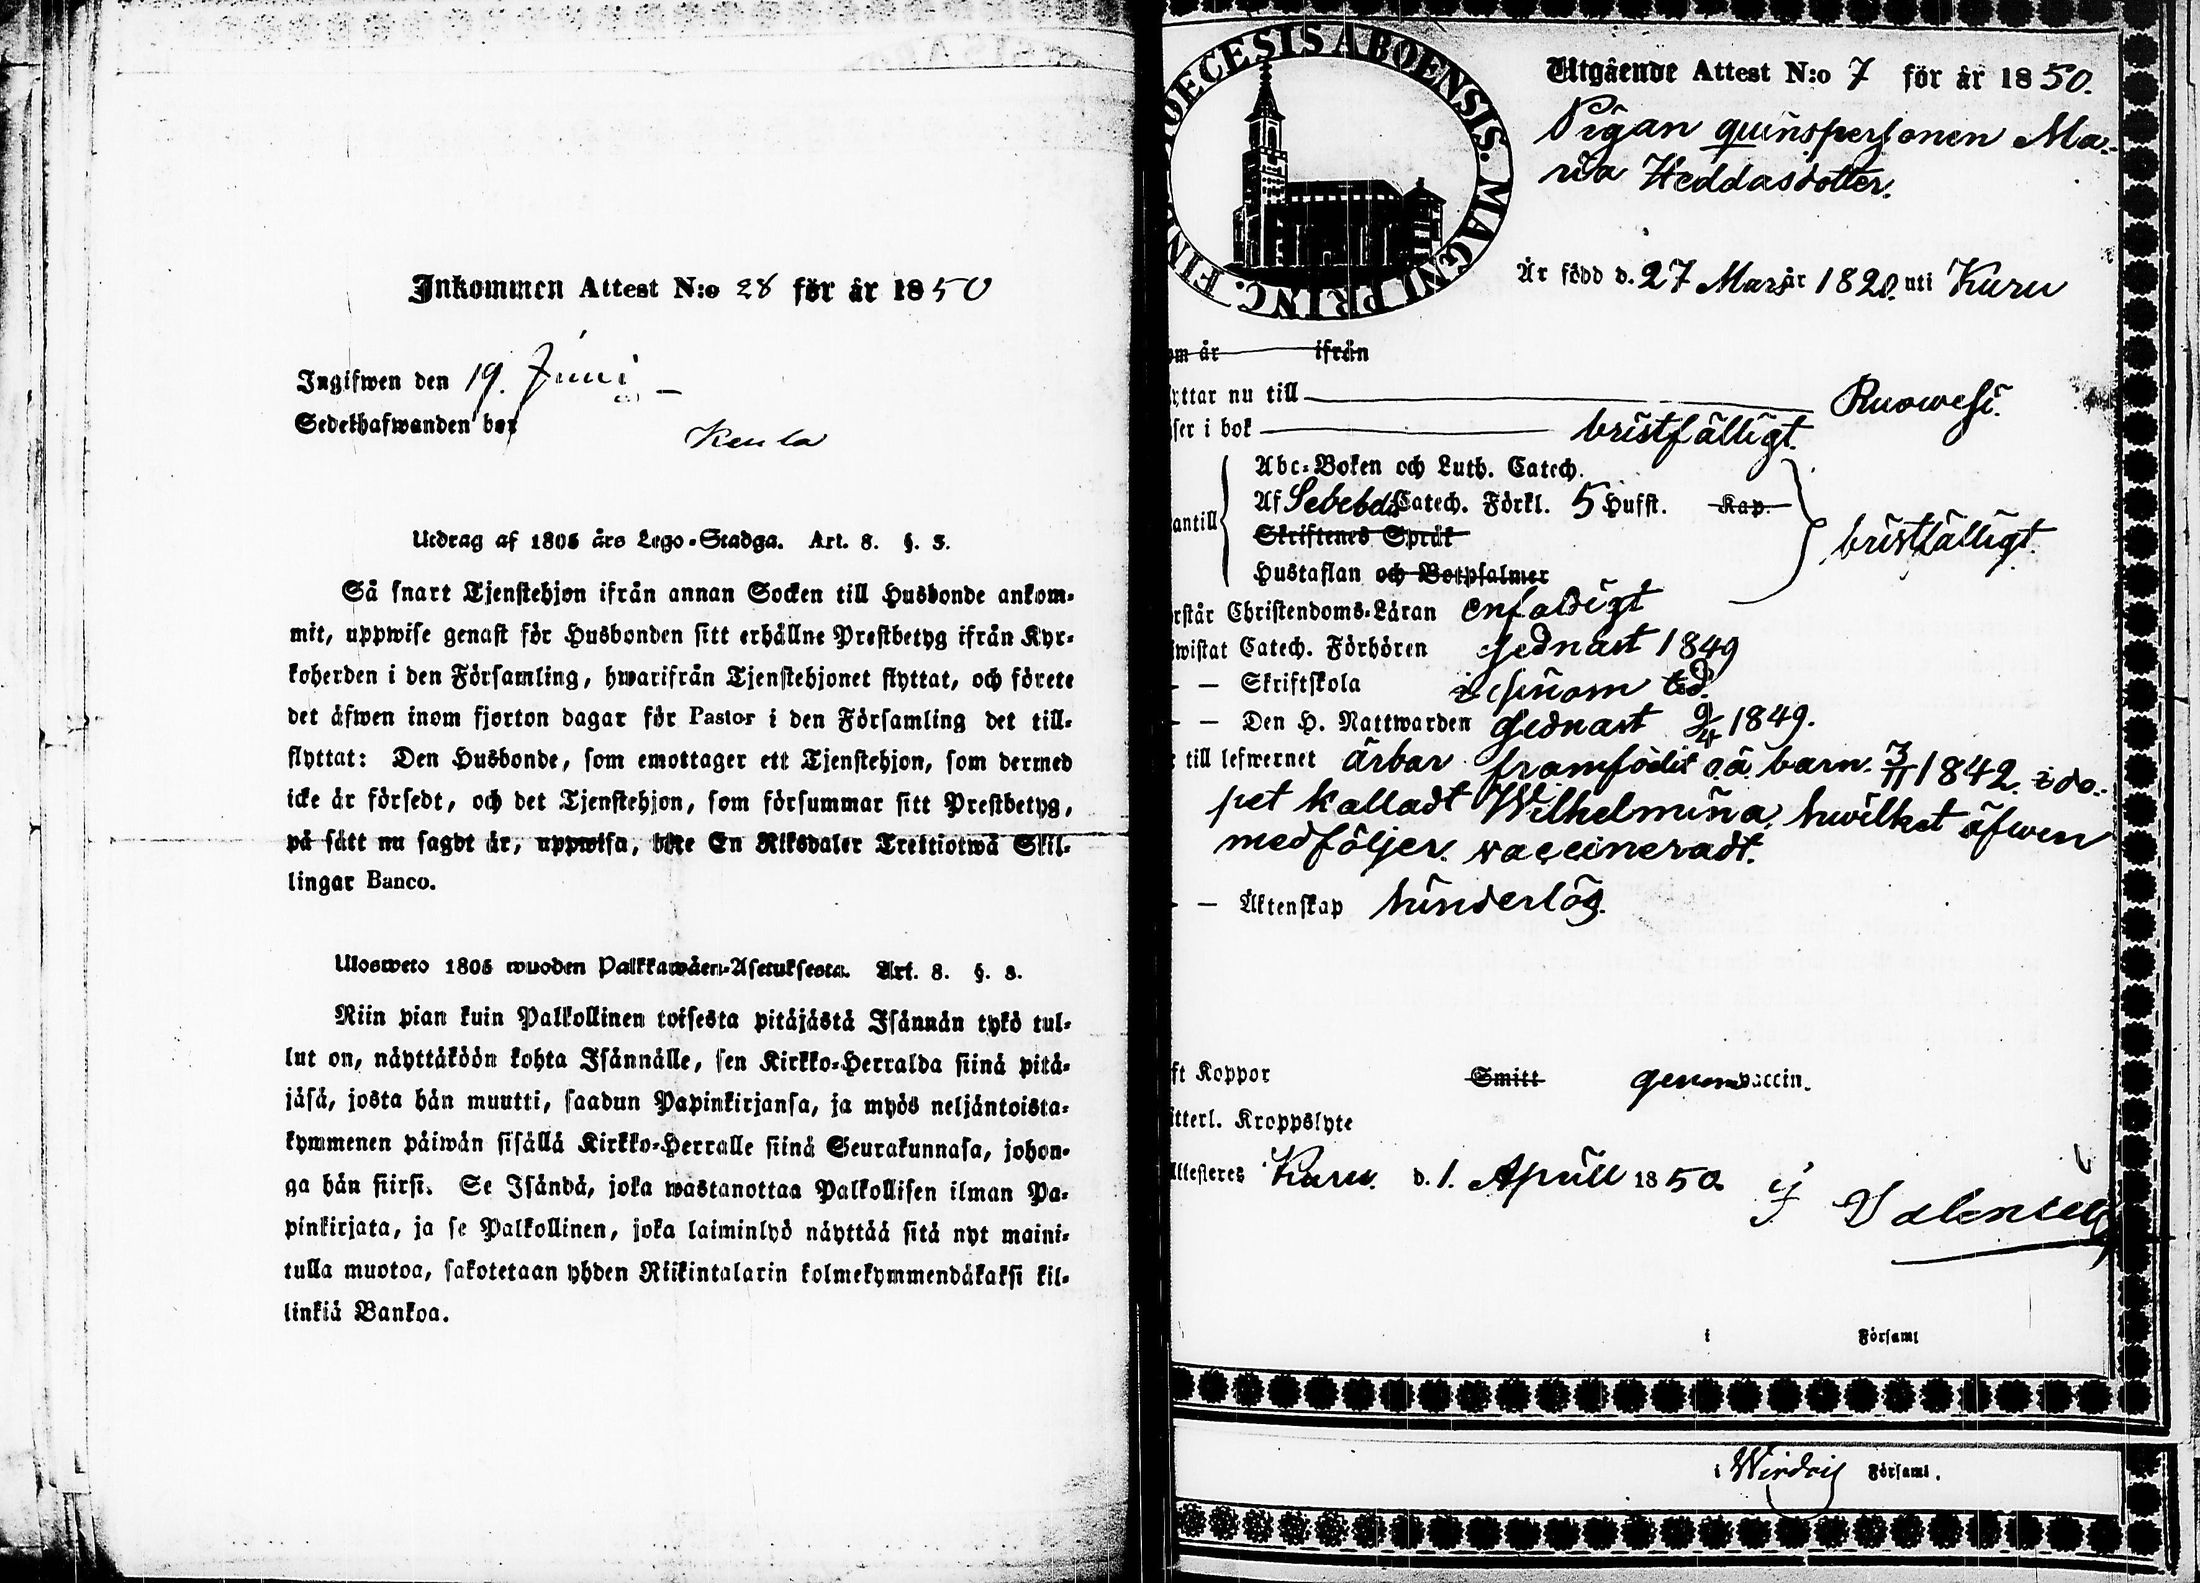 Inkommen Attest N:o 28 för år 1850
Ingifwen den 19. Juni
Sedelhafwanden bor
Keula
Utdrag af 1805 års Lego-Stadga. Art. 8. §. 3.
Så snart Tjenstehjon ifrån annan Socken till Husbonde ankom-
mit, uppwise genast för Husbonden sitt erhållne Prestbetyg ifrån Kyr-
koherden i den Församling, hwarifrån Tjenstehjonet flyttat, och förete
det äfwen inom fjorton dagar för Pastor i den Församling det till-
flyttat: Den Husbonde, som emottager ett Tjenstehjon, som dermed
icke är försedt, och det Tjenstehjon, som försummar sitt Prestbetyg,
på sätt nu sagdt är, uppwisa, böte En Riksdaler Trettiotwå Skil-
lingar Banco.
Ulosweto 1805 wuoden Palkkawäen-Asetuksesta. Art. 8. §. 3.
Niin pian kuin Palkollinen toisesta pitäjästä Isännän tykö tul-
lut on, näyttäköön kohta Isännälle, sen Kirkko-Herralda siinä pitä-
jäsä, josta hän muutti, saadun Papinkirjansa, ja myös neljäntoista-
kymmenen päiwän sisällä Kirkko-Herralle siinä Seurakunnasa, johon-
ga hän siirsi. Se Isändä, joka wastanottaa Palkollisen ilman Pa-
pinkirjata, ja se Palkollinen, joka laiminlyö näyttää sitä nyt maini-
tulla muotoa, sakotetaan yhden Riikintalarin kolmekymmendäkaksi kil-
linkiä Bankoa.
DIOECESIS ABOENSIS. MAGNI PRINC. FIN
Utgående Attest N:o 7 för år 1850.
Pigan quinspersonen Ma-
ria Heddasdotter.
Är född d. 27 Mars år 1820. uti Kuru
om år ifrån
yttar nu till Ruowesi.
ser i bok bristfälligt.
Abc-Boken och Luth. Catech.
Af Sebelds Catech. Förkl. 5 Hufst. Kap.
antill
Skriftenes Språk
bristfälligt.
Hustaflan och Botpsalmer
rstår Christendoms-Läran enfaldigt
wistat Catech. Förhören sednast 1849
— Skriftskola i sinom tid.
— Den H. Nattwarden sednast 9/4 1849.
till lefwernet ärbar framfödit oä. barn. 3/11 1842. i do-
pet kalladt Wilhelmina, hwilket äfwen
medföljer. vaccineradt.
— Äktenskap hinderlös.
ft Koppor Smitt genom vaccin.
tterl. Kroppslyte
Attesteres Kuru. d. 1. April 1850.
i Församl
i Wirdois Församl.